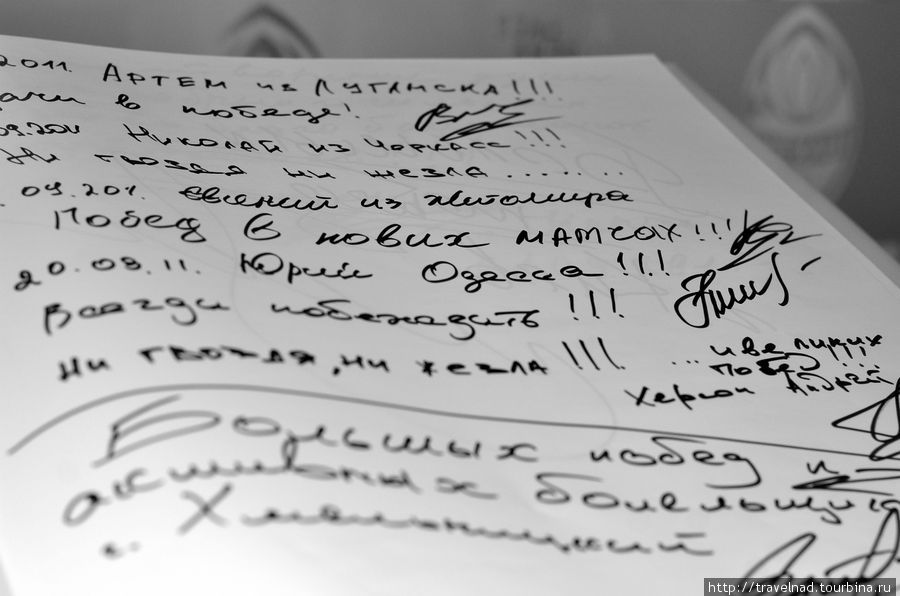 2011. Артем из Луганска!!!
в победе!
09.2011 Николай из Черкасс!!!
Ни гвоздя ни жезла........
.09.201. Евгений из Житомира
Побед в новых матчах!!!
20.09.11. Юрий Одесса!!!
Всегда побеждать!!!
Ни гвоздя, ни жезла!!!
... и великих
побед!!!
Херсон Андрей
Больших побед и
активных болельщиков
г. Хмельницкий
http://travelnad.tourbina.ru